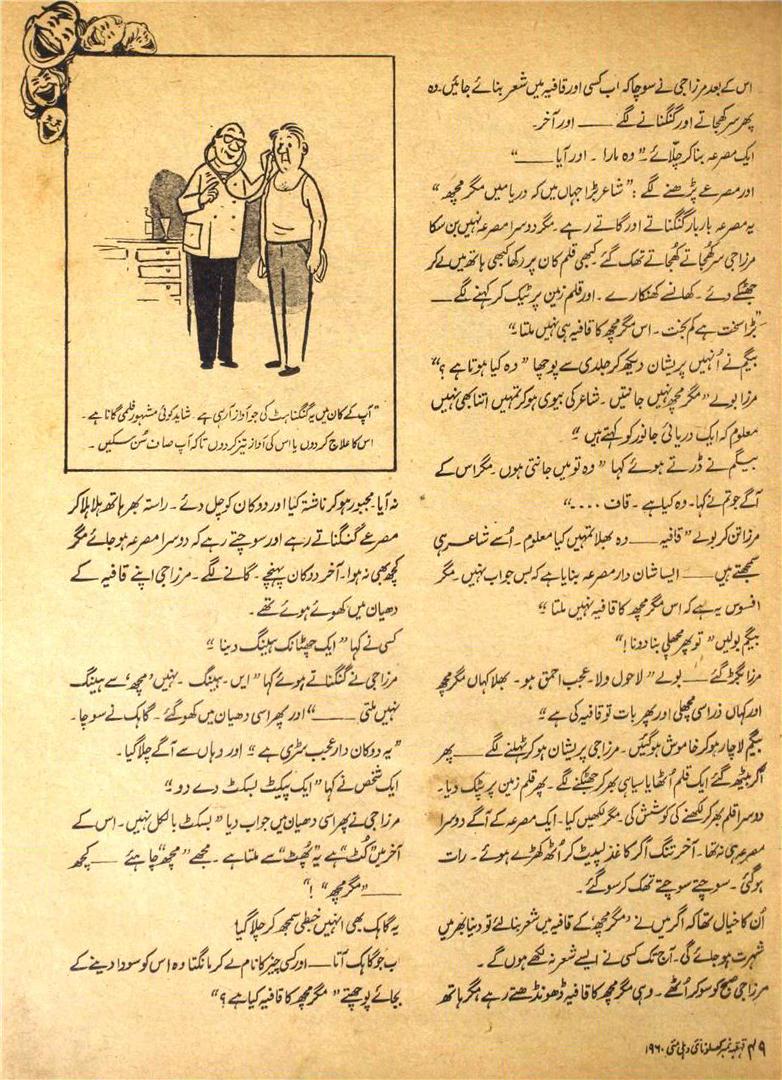 اس کے بعد مرزا جی نے سوچا کہ اب کسی اور قافیہ میں شعر بنائے جائیں۔ وہ
پھر سر کھجاتے اور گنگنانے لگے ــــ اور آخر۔
ایک مصرعہ بنا کر چلّائے۔ "وہ مارا ۔ اور آیا ــــ"
اور مصرعے پڑھنے لگے : "شاعر بڑا جہاں میں کہ دریا میں مگر مچھ"
یہ مصرعہ بار بار گنگناتے اور گاتے رہے ۔ مگر دوسرا مصرعہ نہیں بن سکا
مرزا جی سر کھُجاتے کھُجاتے تھک گئے ۔ کبھی قلم کان پر رکھا کبھی ہاتھ میں لے کر
جھٹکے دئے ۔ کھانسے کھنکارے ۔ اور قلم زمین پر ٹیک کر کہنے لگے ــــ
"بڑا سخت ہے کم بخت ۔ اس مگر مچھ کا قافیہ ہی نہیں ملتا ۔"
بیگم نے اُنہیں پریشان دیکھ کر جلدی سے پوچھا "وہ کیا ہوتا ہے ؟"
مرزا بولے "مگر مچھ نہیں جانتیں ۔ شاعر کی بیوی ہو کر تمہیں اتنا بھی نہیں
معلوم کہ ایک دریائی جانور کو کہتے ہیں ۔"
بیگم نے ڈرتے ہوئے کہا "وہ تو میں جانتی ہوں ۔ مگر اس کے
آگے جو تم نے کہا ۔ وہ کیا ہے ۔ قاف ...."
مرزا تن کر بولے "قافیہ ــــ وہ بھلا تمہیں کیا معلوم ۔ اُسے شاعر ہی
سمجھتے ہیں ــــ ایسا شان دار مصرعہ بنایا ہے کہ بس جواب نہیں ۔ مگر
افسوس یہ ہے کہ اس مگر مچھ کا قافیہ نہیں ملتا ۔"
بیگم بولیں "تو پھر مچھلی بنا دو نا !"
مرزا بگڑ گئے ــــ بولے "لاحول ولا ۔ عجب احمق ہو ۔ بھلا کہاں مگر مچھ
اور کہاں ذرا سی مچھلی اور پھر بات تو قافیہ کی ہے "
بیگم لاچار ہو کر خاموش ہو گئیں ۔ مرزا جی پریشان ہو کر ٹہلنے لگے ــــ پھر
آ کر بیٹھ گئے ایک قلم اُٹھایا سیاہی بھر کر جھٹکنے لگے ۔ پھر قلم زمین پر پٹک دیا۔
دوسرا قلم بھر کر لکھنے کی کوشش کی ۔ مگر لکھیں کیا ۔ ایک مصرعہ کے آگے دوسرا
مصرعہ ہی نہ تھا ۔ آخر تنگ آ کر کاغذ لپیٹ کر اُٹھ کھڑے ہوئے ۔ رات
ہو گئی ۔ سوچتے سوچتے تھک کر سو گئے ۔
اُن کا خیال تھا کہ اگر میں نے 'مگر مچھ' کے قافیہ میں شعر بنا لئے تو دنیا بھر میں
شہرت ہو جائے گی ۔ آج تک کسی نے ایسے شعر نہ لکھے ہوں گے ۔
مرزا جی صبح کو سو کر اُٹھے ۔ وہی مگر مچھ کا قافیہ ڈھونڈھتے رہے مگر ہاتھ
"آپ کے کان میں یہ گنگناہٹ کی جو آواز آ رہی ہے ۔ شاید کوئی مشہور فلمی گانا ہے ۔
اس کا علاج کر دوں یا اس کی آواز تیز کر دوں تا کہ آپ صاف سُن سکیں ۔
نہ آیا ۔ مجبور ہو کر ناشتہ کیا اور دوکان کو چل دئے ۔ راستہ بھر ہاتھ ہلا ہلا کر
مصرعے گنگناتے رہے اور سوچتے رہے کہ دوسرا مصرعہ ہو جائے مگر
کچھ بھی نہ ہوا ۔ آخر دوکان پہنچے ۔ گانے لگے ۔ مرزا جی اپنے قافیہ کے
دھیان میں کھوئے ہوئے تھے ۔
کسی نے کہا "ایک چھٹانک ہینگ دینا "
مرزا جی نے گنگناتے ہوئے کہا "ایں ۔ ہینگ ۔ نہیں 'مچھ' سے ہینگ
نہیں ملتی ــــ" اور پھر اسی دھیان میں کھو گئے ۔ گاہک نے سوچا ۔
"یہ دوکان دار عجب سٹری ہے " اور وہاں سے آگے چلا گیا ۔
ایک شخص نے کہا "ایک پیکٹ بسکٹ دے دو ۔"
مرزا جی نے پھر اسی دھیان میں جواب دیا "بسکٹ بالکل نہیں ۔ اس کے
آخر میں "کُٹ" ہے یہ "پھُٹ" سے ملتا ہے ۔ مجھے "مچھ" چاہئے ــــ کچھ
ــــ "مگر مچھ" !"
یہ گاہک بھی انہیں خبطی سمجھ کر چلا گیا
ب جو گاہک آتا ــــ اور کسی چیز کا نام لے کر مانگتا وہ اس کو سودا دینے کے
بجائے پوچھتے "مگر مچھ کا قافیہ کیا ہے ؟"
۴۹ قہقہہ نمبر کھلونا نئی دہلی مئی ۱۹۶۰